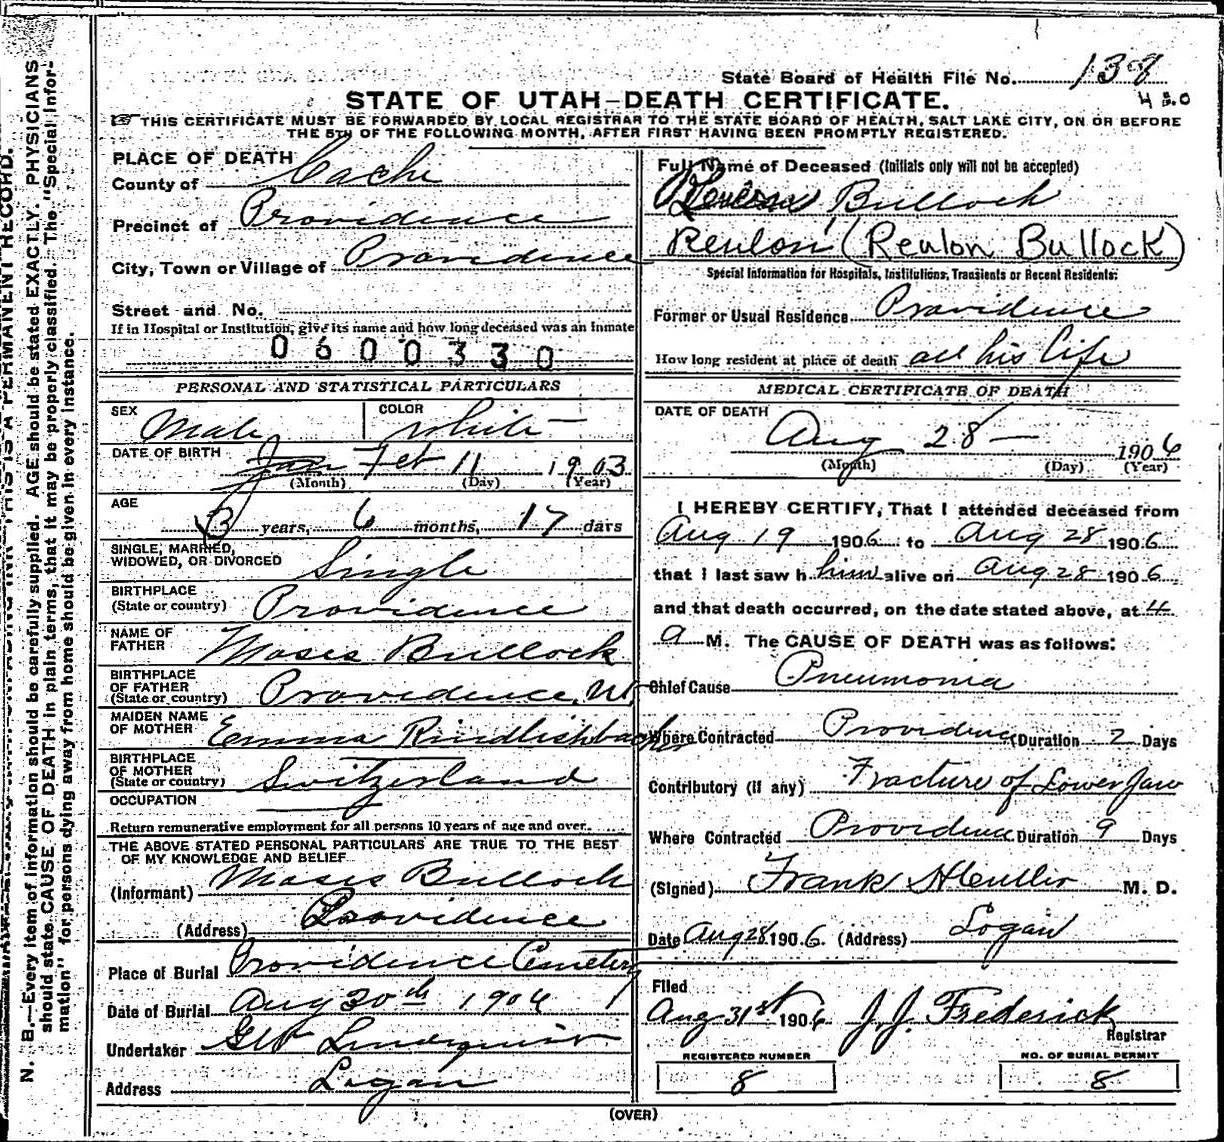 State Board of Health File No. 138
430
STATE OF UTAH—DEATH CERTIFICATE.
THIS CERTIFICATE MUST BE FORWARDED BY LOCAL REGISTRAR TO THE STATE BOARD OF HEALTH, SALT LAKE CITY, ON OR BEFORE
THE 5TH OF THE FOLLOWING MONTH, AFTER FIRST HAVING BEEN PROMPTLY REGISTERED.
PLACE OF DEATH
County of Cache
Precinct of Providence
City, Town or Village of Providence
Street and No.
If in Hospital or Institution, give its name and how long deceased was an inmate
0600330
PERSONAL AND STATISTICAL PARTICULARS
SEX Male COLOR White
DATE OF BIRTH Jan Feb 11 1903
(Month) (Day) (Year)
AGE 3 years, 6 months, 17 days
SINGLE, MARRIED,
WIDOWED, OR DIVORCED Single
BIRTHPLACE
(State or country) Providence
NAME OF
FATHER Moses Bullock
BIRTHPLACE
OF FATHER
(State or country) Providence, Ut.
MAIDEN NAME
OF MOTHER Emma Rindlishbacher
BIRTHPLACE
OF MOTHER
(State or country) Switzerland
OCCUPATION
Return remunerative employment for all persons 10 years of age and over.
THE ABOVE STATED PERSONAL PARTICULARS ARE TRUE TO THE BEST
OF MY KNOWLEDGE AND BELIEF
(Informant) Moses Bullock
(Address) Providence
Place of Burial Providence Cemetery
Date of Burial Aug 30th 1906
Undertaker Lundquist
Address Logan
Full Name of Deceased (Initials only will not be accepted)
Bullock
Reulon (Reulon Bullock)
Special Information for Hospitals, Institutions, Transients or Recent Residents:
Former or Usual Residence Providence
How long resident at place of death all his life
MEDICAL CERTIFICATE OF DEATH
DATE OF DEATH
Aug 28 — 1906
(Month) (Day) (Year)
I HEREBY CERTIFY, That I attended deceased from
Aug 19 1906 to Aug 28 1906
that I last saw him alive on Aug 28 1906
and that death occurred, on the date stated above, at 4
a M. The CAUSE OF DEATH was as follows:
Chief Cause Pneumonia
Where Contracted Providence Duration 2 Days
Contributory (if any) Fracture of Lower Jaw
Where Contracted Providence Duration 9 Days
(Signed) Frank M. D.
Date Aug 28 1906. (Address) Logan
Filed
Aug 31st 1906 J. J. Frederick
Registrar
REGISTERED NUMBER
8
NO. OF BURIAL PERMIT
8
(OVER)
N. B.—Every item of information should be carefully supplied. AGE should be stated EXACTLY. PHYSICIANS
should state CAUSE OF DEATH in plain terms, that it may be properly classified. The "Special Infor-
mation" for persons dying away from home should be given in every instance.
THIS IS A PERMANENT RECORD.